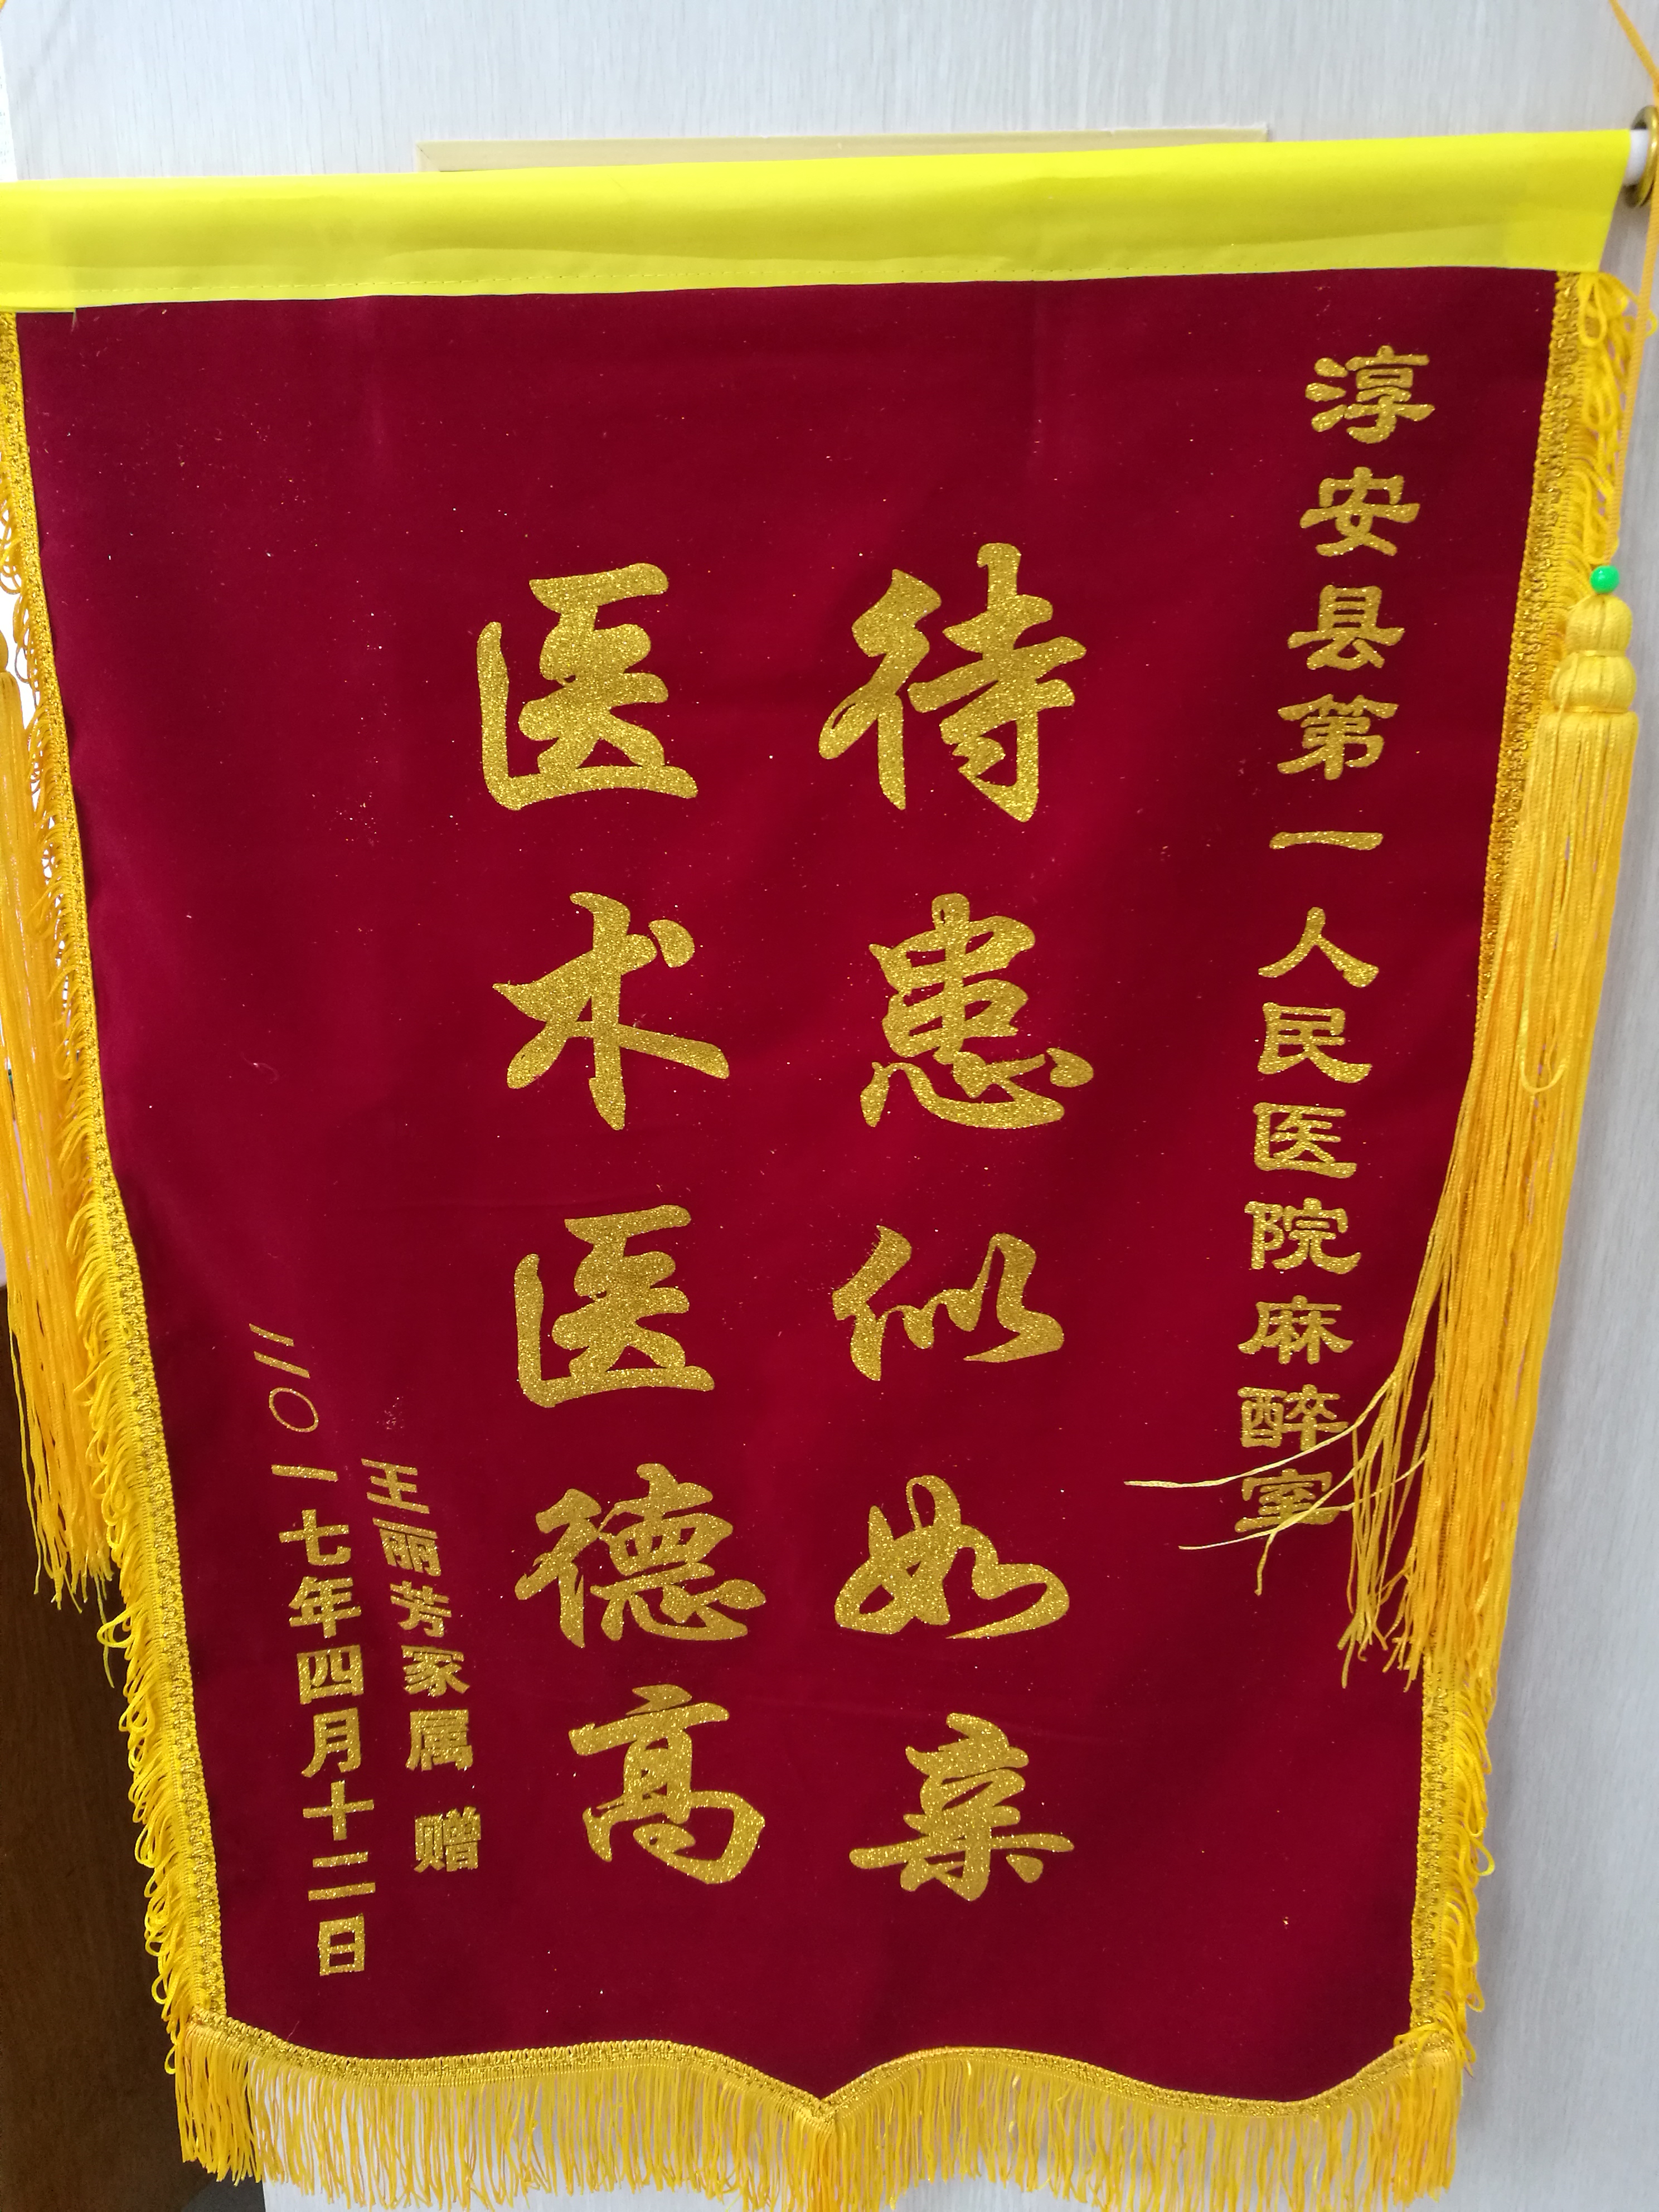 淳安县第一人民医院麻醉室
待患似如亲
医术医德高
王丽芳家属 赠
二〇一七年四月十二日